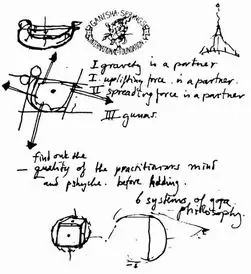 GANESHA · SPRINGS
INTERNATIONAL FOUNDATION
I gravety is a partner
I. uplifting force. is a partner.
II spreading force is a partner
III gunas.
find out the
— quality of the practitioners mind
and pshyche. before Adding.
6 systems of yoga
philosophy